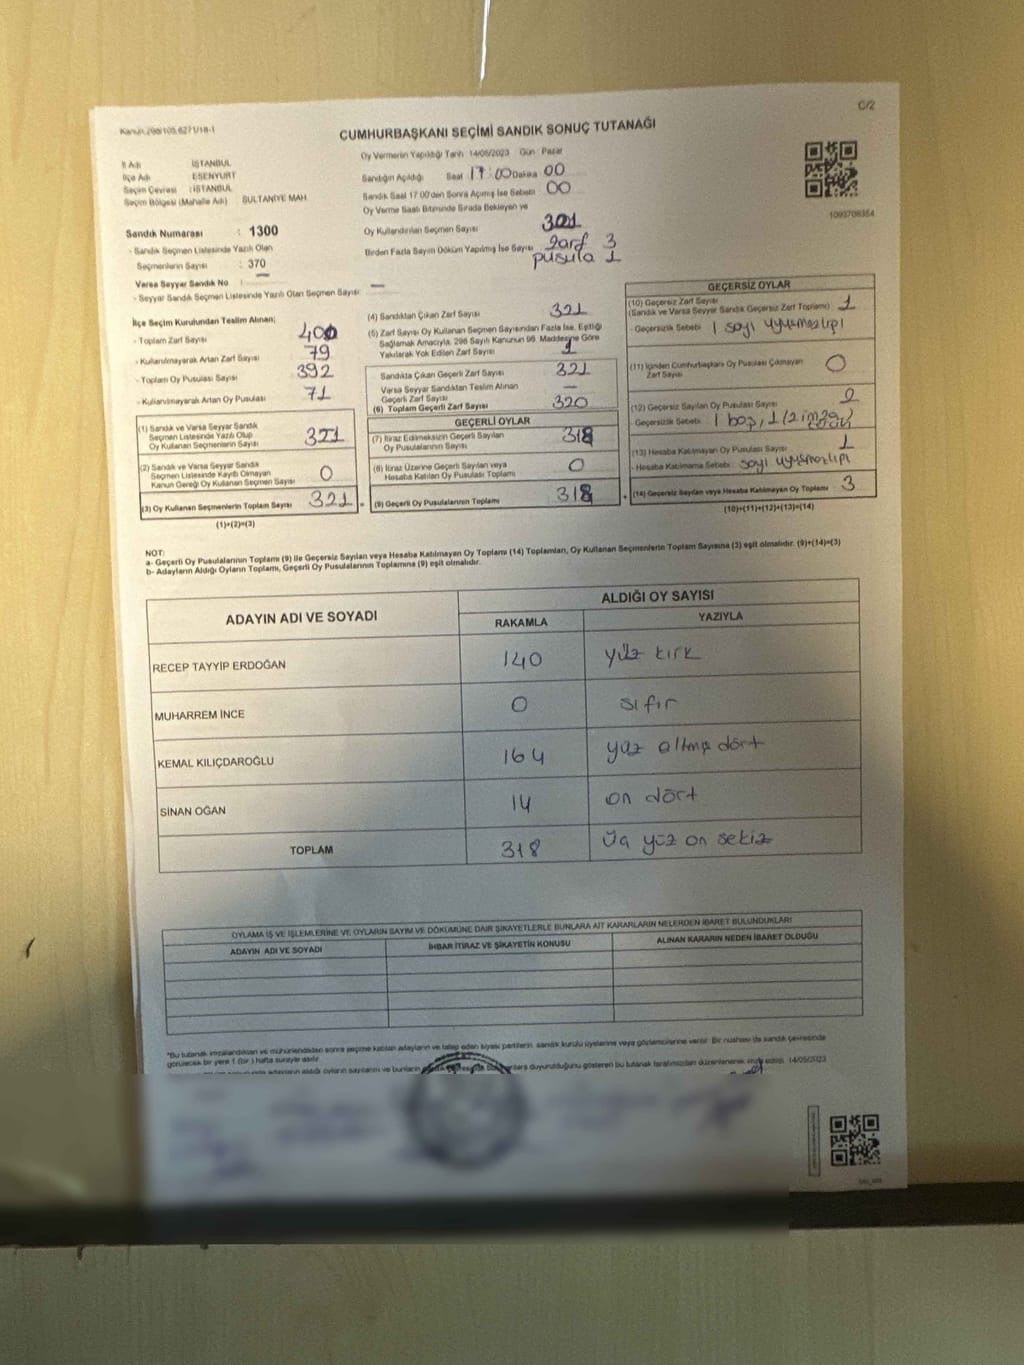 C/2
Kanun 298/105.6271/18-1
CUMHURBAŞKANI SEÇİMİ SANDIK SONUÇ TUTANAĞI
İl Adı İSTANBUL
İlçe Adı ESENYURT
Seçim Çevresi : İSTANBUL
Seçim Bölgesi (Mahalle Adı) SULTANİYE MAH.
Sandık Numarası : 1300
- Sandık Seçmen Listesinde Yazılı Olan
Seçmenlerin Sayısı : 370
Varsa Seyyar Sandık No : —
- Seyyar Sandık Seçmen Listesinde Yazılı Olan Seçmen Sayısı: —
Oy Vermenin Yapıldığı Tarih 14/05/2023 Gün : Pazar
Sandığın Açıldığı Saat 17:00 Dakika 00
Sandık Saat 17:00'den Sonra Açılmış İse Sebebi 00
Oy Verme Saati Bitiminde Sırada Bekleyen ve
Oy Kullandırılan Seçmen Sayısı 321
Birden Fazla Sayım Döküm Yapılmış İse Sayısı zarf 3
pusula 1
1093708354
İlçe Seçim Kurulundan Teslim Alınan;
- Toplam Zarf Sayısı 400
- Kullanılmayarak Artan Zarf Sayısı 79
- Toplam Oy Pusulası Sayısı 392
- Kullanılmayarak Artan Oy Pusulası 71
(1) Sandık ve Varsa Seyyar Sandık
Seçmen Listesinde Yazılı Olup
Oy Kullanan Seçmenlerin Sayısı 321
(2) Sandık ve Varsa Seyyar Sandık
Seçmen Listesinde Kayıtlı Olmayan
Kanun Gereği Oy Kullanan Seçmen Sayısı 0
(3) Oy Kullanan Seçmenlerin Toplam Sayısı 321
(1)+(2)=(3)
(4) Sandıktan Çıkan Zarf Sayısı 321
(5) Zarf Sayısı Oy Kullanan Seçmen Sayısından Fazla İse, Eşitliği
Sağlamak Amacıyla, 298 Sayılı Kanunun 98. Maddesine Göre
Yakılarak Yok Edilen Zarf Sayısı 1
Sandıkta Çıkan Geçerli Zarf Sayısı 321
Varsa Seyyar Sandıktan Teslim Alınan
Geçerli Zarf Sayısı —
(6) Toplam Geçerli Zarf Sayısı 320
GEÇERLİ OYLAR
(7) İtiraz Edilmeksizin Geçerli Sayılan
Oy Pusulalarının Sayısı 318
(8) İtiraz Üzerine Geçerli Sayılan veya
Hesaba Katılan Oy Pusulası Toplamı 0
(9) Geçerli Oy Pusulalarının Toplamı 318
GEÇERSİZ OYLAR
(10) Geçersiz Zarf Sayısı
(Sandık ve Varsa Seyyar Sandık Geçersiz Zarf Toplamı) 1
- Geçersizlik Sebebi 1 sayı uyuşmazlığı
(11) İçinden Cumhurbaşkanı Oy Pusulası Çıkmayan
Zarf Sayısı 0
(12) Geçersiz Sayılan Oy Pusulası Sayısı 2
- Geçersizlik Sebebi 1 boş, 1
(13) Hesaba Katılmayan Oy Pusulası Sayısı 1
- Hesaba Katılmama Sebebi sayı uyuşmazlığı
(14) Geçersiz Sayılan veya Hesaba Katılmayan Oy Toplamı 3
(10)+(11)+(12)+(13)=(14)
NOT:
a- Geçerli Oy Pusulalarının Toplamı (9) ile Geçersiz Sayılan veya Hesaba Katılmayan Oy Toplamı (14) Toplamları, Oy Kullanan Seçmenlerin Toplam Sayısına (3) eşit olmalıdır. (9)+(14)=(3)
b- Adayların Aldığı Oyların Toplamı, Geçerli Oy Pusulalarının Toplamına (9) eşit olmalıdır.
ADAYIN ADI VE SOYADI ALDIĞI OY SAYISI
RAKAMLA YAZIYLA
RECEP TAYYİP ERDOĞAN 140 yüz kırk
MUHARREM İNCE 0 sıfır
KEMAL KILIÇDAROĞLU 164 yüz altmış dört
SİNAN OĞAN 14 on dört
TOPLAM 318 üç yüz on sekiz
OYLAMA İŞ VE İŞLEMLERİNE VE OYLARIN SAYIM VE DÖKÜMÜNE DAİR ŞİKAYETLERLE BUNLARA AİT KARARLARIN NELERDEN İBARET BULUNDUKLARI
ADAYIN ADI VE SOYADI İHBAR İTİRAZ VE ŞİKAYETİN KONUSU ALINAN KARARIN NEDEN İBARET OLDUĞU
*Bu tutanak imzalandıktan ve mühürlendikten sonra seçime katılan adayların ve talep eden siyasi partilerin sandık kurulu üyelerine veya gözlemcilerine verilir. Bir nüshası da sandık çevresinde
görülecek bir yere 1 (bir) hafta süreyle asılır.
adayların aldığı oyların sayılarını ve bunların duyurulduğunu gösteren bu tutanak tarafımızdan düzenlenerek imza edildi. 14/05/2023